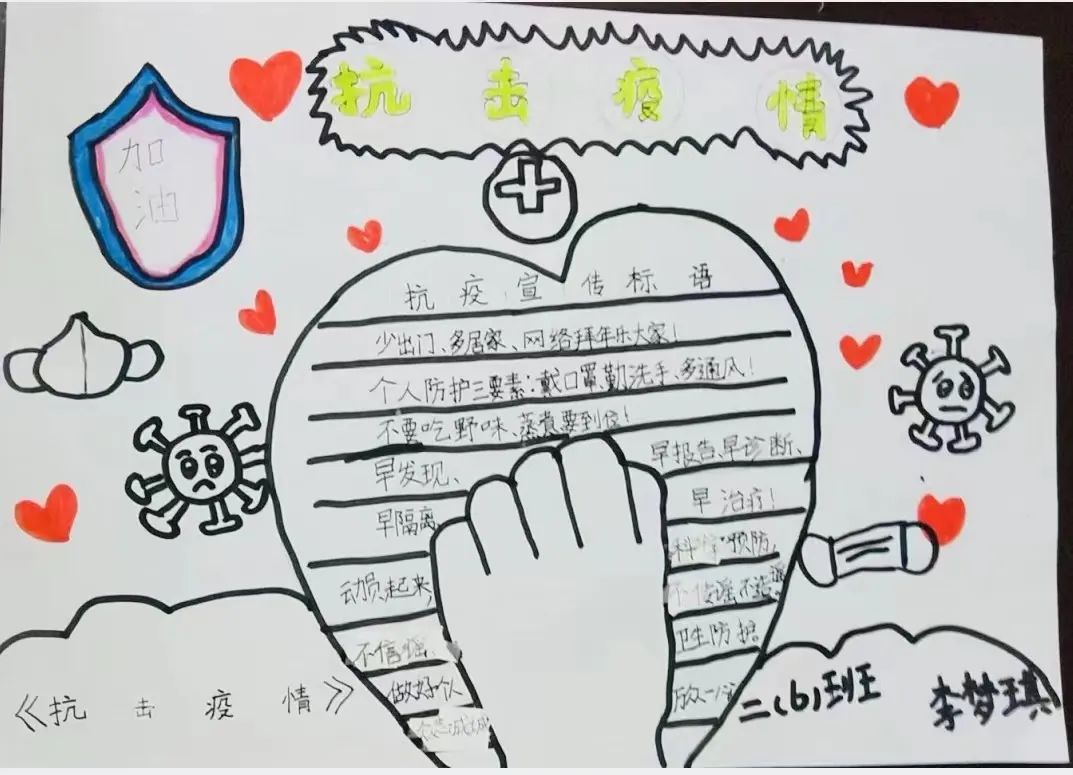 抗击疫情
加
油
抗疫宣传标语
少出门、多居家、网络拜年乐大家!
个人防护三要素:戴口罩、勤洗手、多通风!
不要吃野味、蒸煮要到位!
早发现、 早报告、早诊断、
早隔离 早治疗!
动员起来, 科学预防,
不信谣、 不传谣不造谣
做好个人 卫生防护。
众志成城
《抗击疫情》
二(6)班 李梦琪